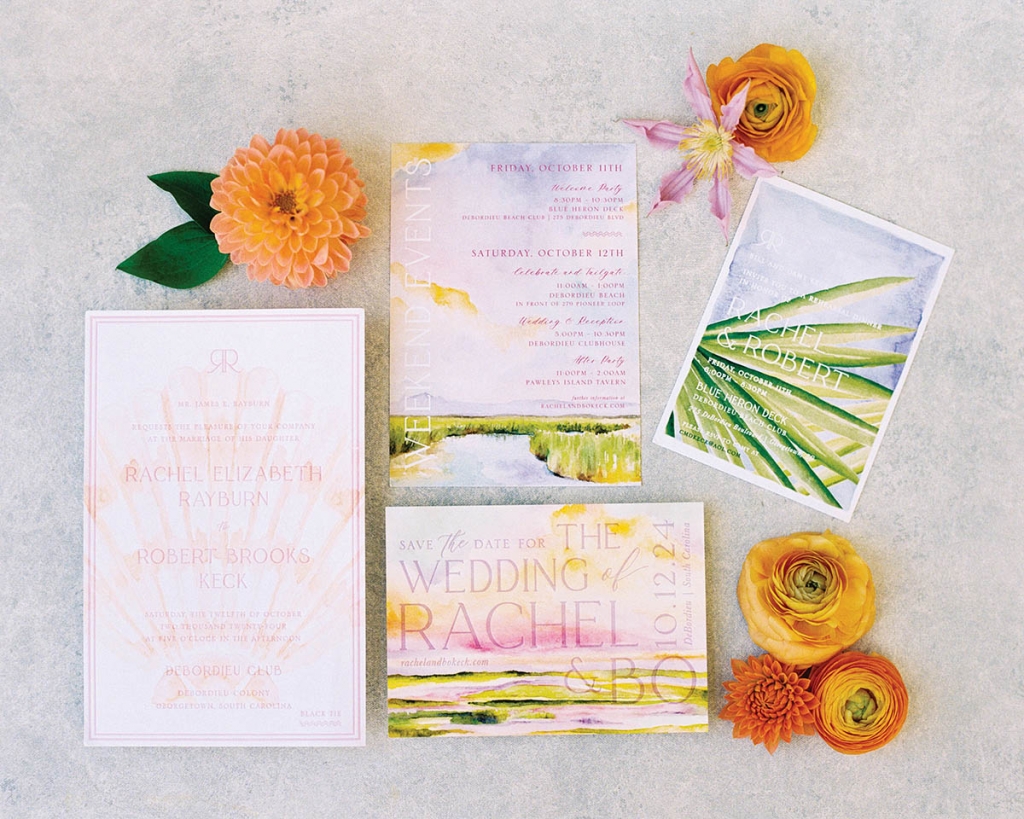 RR
MR. JAMES E. RAYBURN
REQUESTS THE PLEASURE OF YOUR COMPANY
AT THE MARRIAGE OF HIS DAUGHTER
RACHEL ELIZABETH
RAYBURN
to
ROBERT BROOKS
KECK
SATURDAY, THE TWELFTH OF OCTOBER
TWO THOUSAND TWENTY-FOUR
AT FIVE O'CLOCK IN THE AFTERNOON
DEBORDIEU CLUB
DEBORDIEU COLONY
GEORGETOWN, SOUTH CAROLINA
BLACK TIE
WEEKEND EVENTS
FRIDAY, OCTOBER 11TH
Welcome Party
8:30PM - 10:30PM
BLUE HERON DECK
DEBORDIEU BEACH CLUB |
DEBORDIEU BLVD
SATURDAY, OCTOBER 12TH
Celebrate and Tailgate
10:00AM - 1:00PM
DEBORDIEU BEACH
IN FRONT OF 279 PIONEER LOOP
Wedding & Reception
5:00PM - 10:30PM
DEBORDIEU CLUBHOUSE
After Party
11:00PM - 2:00AM
PAWLEYS ISLAND TAVERN
further information at
RACHELANDBOKECK.COM
SAVE the DATE FOR THE
WEDDING of
RACHEL
& BO
10.12.24
DeBordieu | South Carolina
rachelandbokeck.com
RR
BILL AND
INVITE YOU
REHEARSAL DINNER
RACHEL
& ROBERT
FRIDAY, OCTOBER 11TH
6:00PM - 8:30PM
BLUE HERON DECK
DEBORDIEU BEACH CLUB
DeBordieu
PLEASE RSVP TO
AT